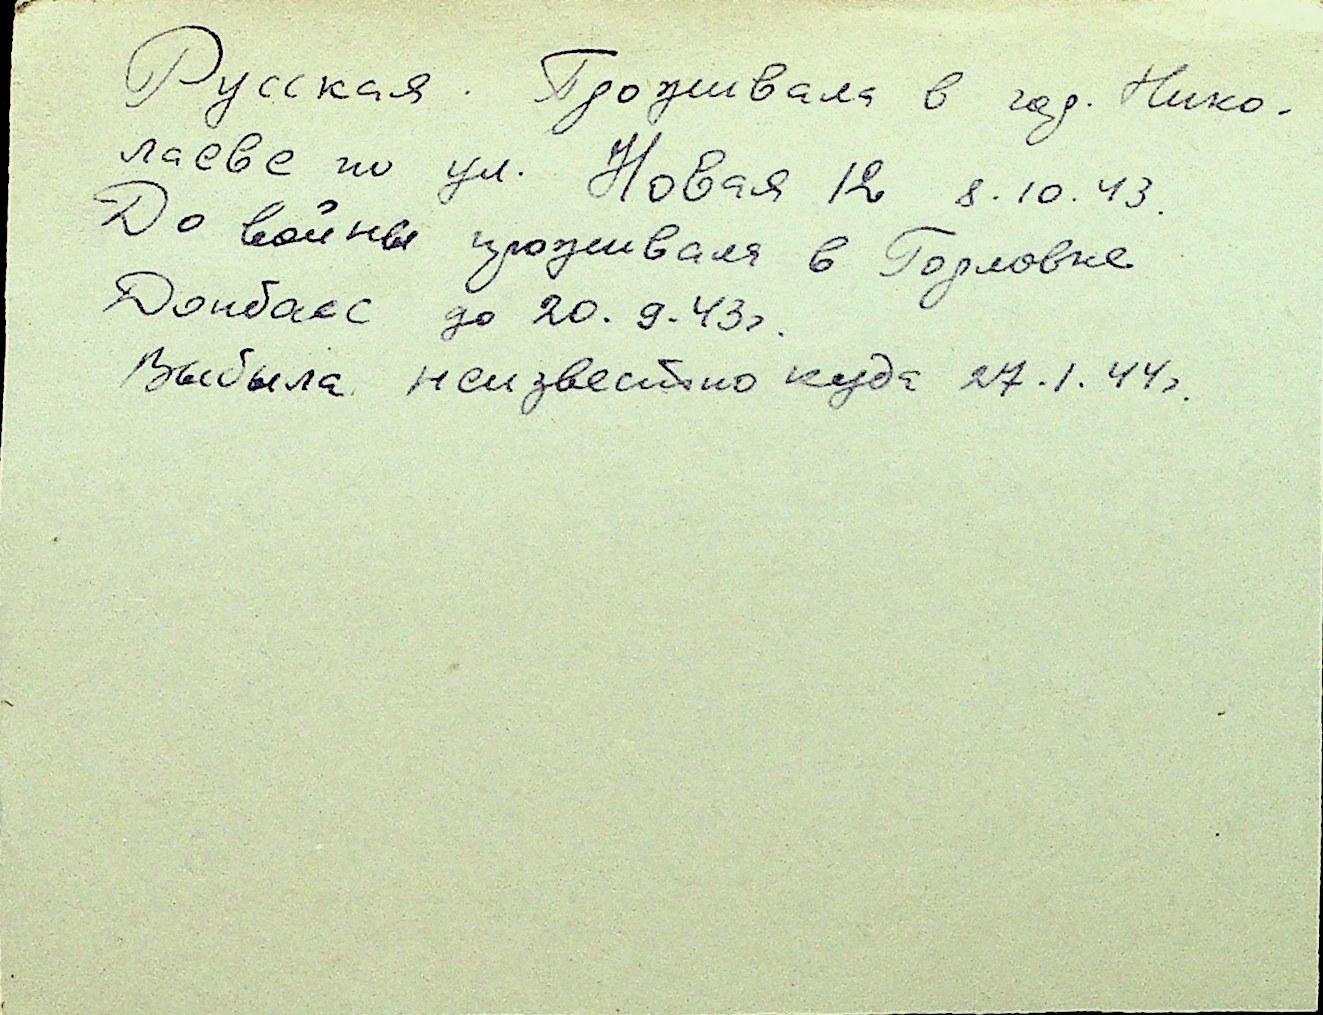 Русская. Проживала в гор. Нико-
лаеве по ул. Новая 12 8.10.43.
До войны проживала в Горловке
Донбасс до 20.9.43г.
Выбыла неизвестно куда 27.1.44г.